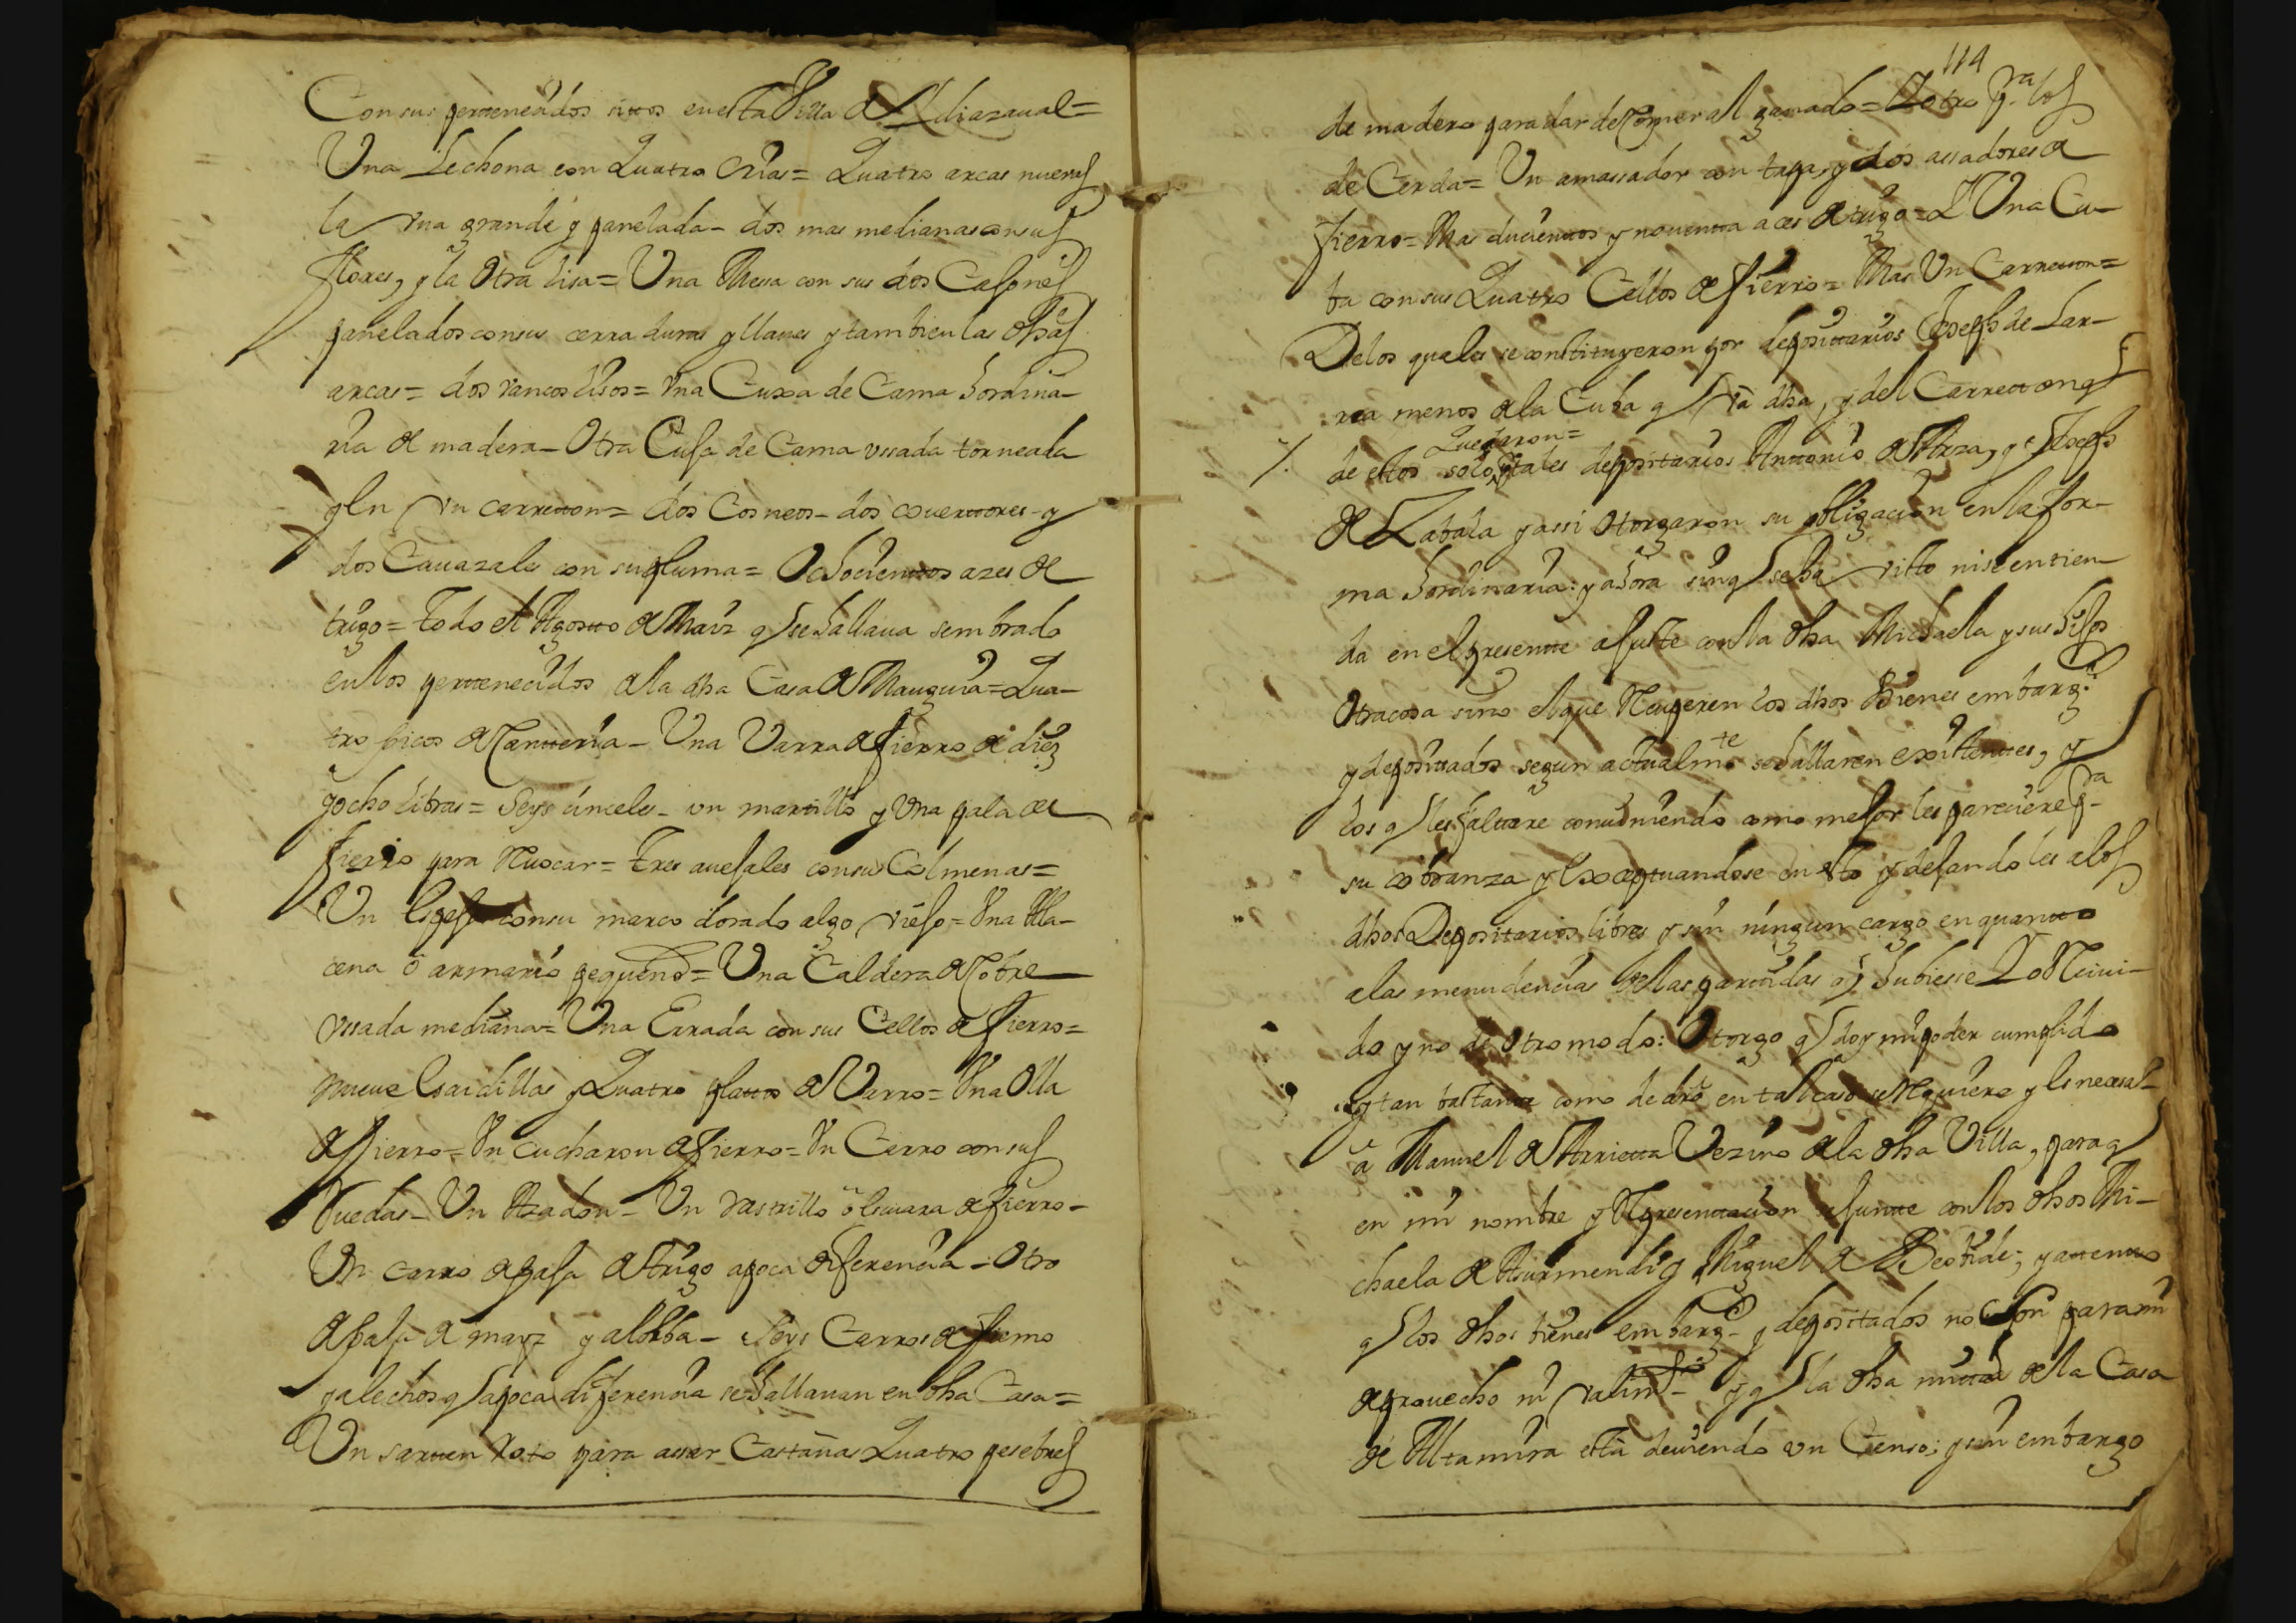 Con sus pertenecidos sitos en esta Villa de Ydiazaual=
Una Lechona con Quatro Crias= Quatro arcas nueuas
la vna grande y panelada- dos mas medianas con sus
flores, y la Otra lisa= Una Mesa con sus dos Caxones
panelados con sus cerraduras y llaues y tambien las dhas
arcas= dos vancos lisos= Vna Cuxa de Cama hordina-
ria de madera- Otra Cuja de Cama vsada torneada
y en vn carretton= dos Cosneos- dos couertores- y
dos Cauazales con su pluma= Ochocientos azes de
trigo= todo el Agosto de Maiz q se hallaua sembrado
en los pertenecidos de la dha Casa de Mauguia= Qua-
tro picos de Canteria- Una Varra de fierro de diez
y ocho libras= Seys cinceles- vn martillo y Vna pala de
fierro para Ruscar= tres auejales con sus Colmenas=
Un Espejo con su marco dorado algo viejo= Vna Ala-
cena ô armario pequeño= Una Caldera de Cobre
vsada mediana= Una Errada con sus Cellos de fierro=
nueue Escudillas y Quatro plattos de Varro= Vna Olla
de fierro= Vn cucharon de fierro= Vn Carro con sus
Ruedas- Un Azadon- Un rastrillo ô Escuara de fierro-
Un carro de paja de trigo a poca diferencia- Otro
de paja de mayz y alolba- Seys Carros de fiemo
y alechos q a poca diferencia se hallauan en dha Casa=
Un sartten Roto para assar Castañas Quatro pesebres
114
de madera para dar de Comer al ganado= Y otro pra los
de Cerda= Un amassador con tapa, y dos assadores de
fierro= Mas ducientos y nouenta aces de trigo= Y Una Cu-
ba con sus Quatro Cellos de fierro= Mas Un Carretton=
De los quales se constituyeron por depositarios Joseph de Lar-
rea menos de la Cuba q va dha, y del Carretton q
de ellos solo Quedaron= tales depositarios Antonio de Ariza, y Joseph
de Zabala y assi Otorgaron su obligacion en la for-
ma hordinaria: y ahora sin q se ha visto ni se entien-
da en el presente ajuste con la dha Michaela y sus hijos
Otra cosa sino el que Recuperen los dhos Bienes embargdos
y depositados segun actualmte se hallaren existentes, y
los q les faltare conuiniendo como mejor les pareciere pra
su cobranza y Exceptuandose en esto y dejandoles a los
dhos Depositarios libres y sin ningun cargo en quanto
a las menudencias de las partidas q hubiesse Y o Reciui-
do y no de Otro modo: Otorgo q doy mi poder cumplido
y tan bastante como de dro en tal caso se Requiere y es necesso
a Manuel de Arrieta Vezino de la dha Villa, para q
en mi nombre y Representacion se junte con los dhos Mi-
chaela de Asurmendi y Miguel de Beotide; y attento
q los dhos bienes embargdos y depositados no son para mi
de prouecho ni valimto y q la dha mitad de la Casa
de Altamira està deuiendo vn Censo; y sin embargo